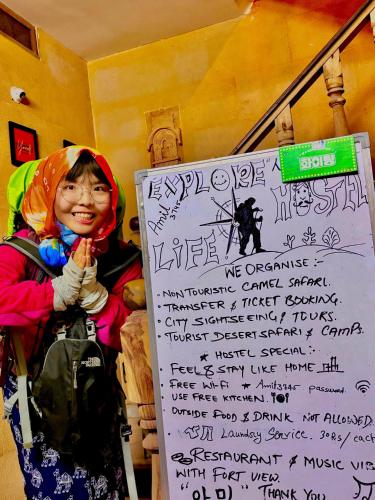 화이팅
EXPLORE
HOSTEL
Amit
3745
LiFE!
WE ORGANISE :-
• NON TOURISTIC CAMEL SAFARI.
• TRANSFER & TICKET BOOKING.
• CITY SIGHTSEEING & TOURS.
• TOURIST DESERT SAFARI & CAMPS.
* HOSTEL SPECIAL :-
• FEEL & STAY LIKE HOME
• FREE Wi-Fi * Amit3745 password.
USE FREE KITCHEN.
OUTSIDE FOOD & DRINK NOT ALLOWED.
Laundry Service. 30Rs/each
RESTAURANT & MUSIC
WITH FORT VIEW.
"아미" THANK YOU
THE NORTH FACE